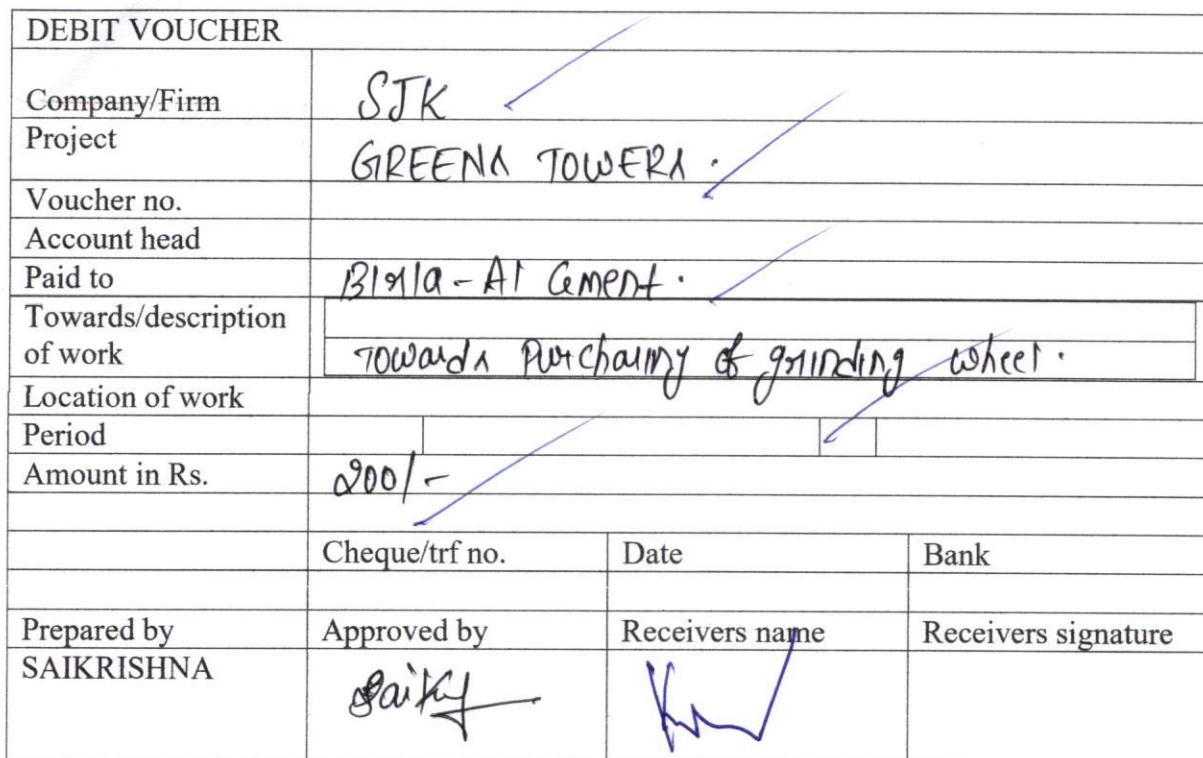 DEBIT VOUCHER
Company/Firm SJK
Project GREENS TOWERS.
Voucher no.
Account head
Paid to Birla-A1 Cement.
Towards/description
of work Towards Purchasing of grinding wheel.
Location of work
Period
Amount in Rs. 200/-
Cheque/trf no. Date Bank
Prepared by Approved by Receivers name Receivers signature
SAIKRISHNA